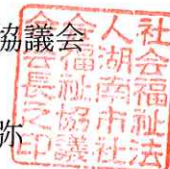 協議会
弥
社会福祉法
人湖南市社
会福祉協議
会会長之印